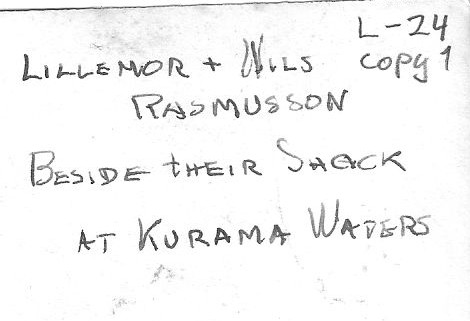 L-24
LILLEMOR + NILS copy 1
RASMUSSON
BESIDE THEIR SHACK
AT KURAMA WATERS